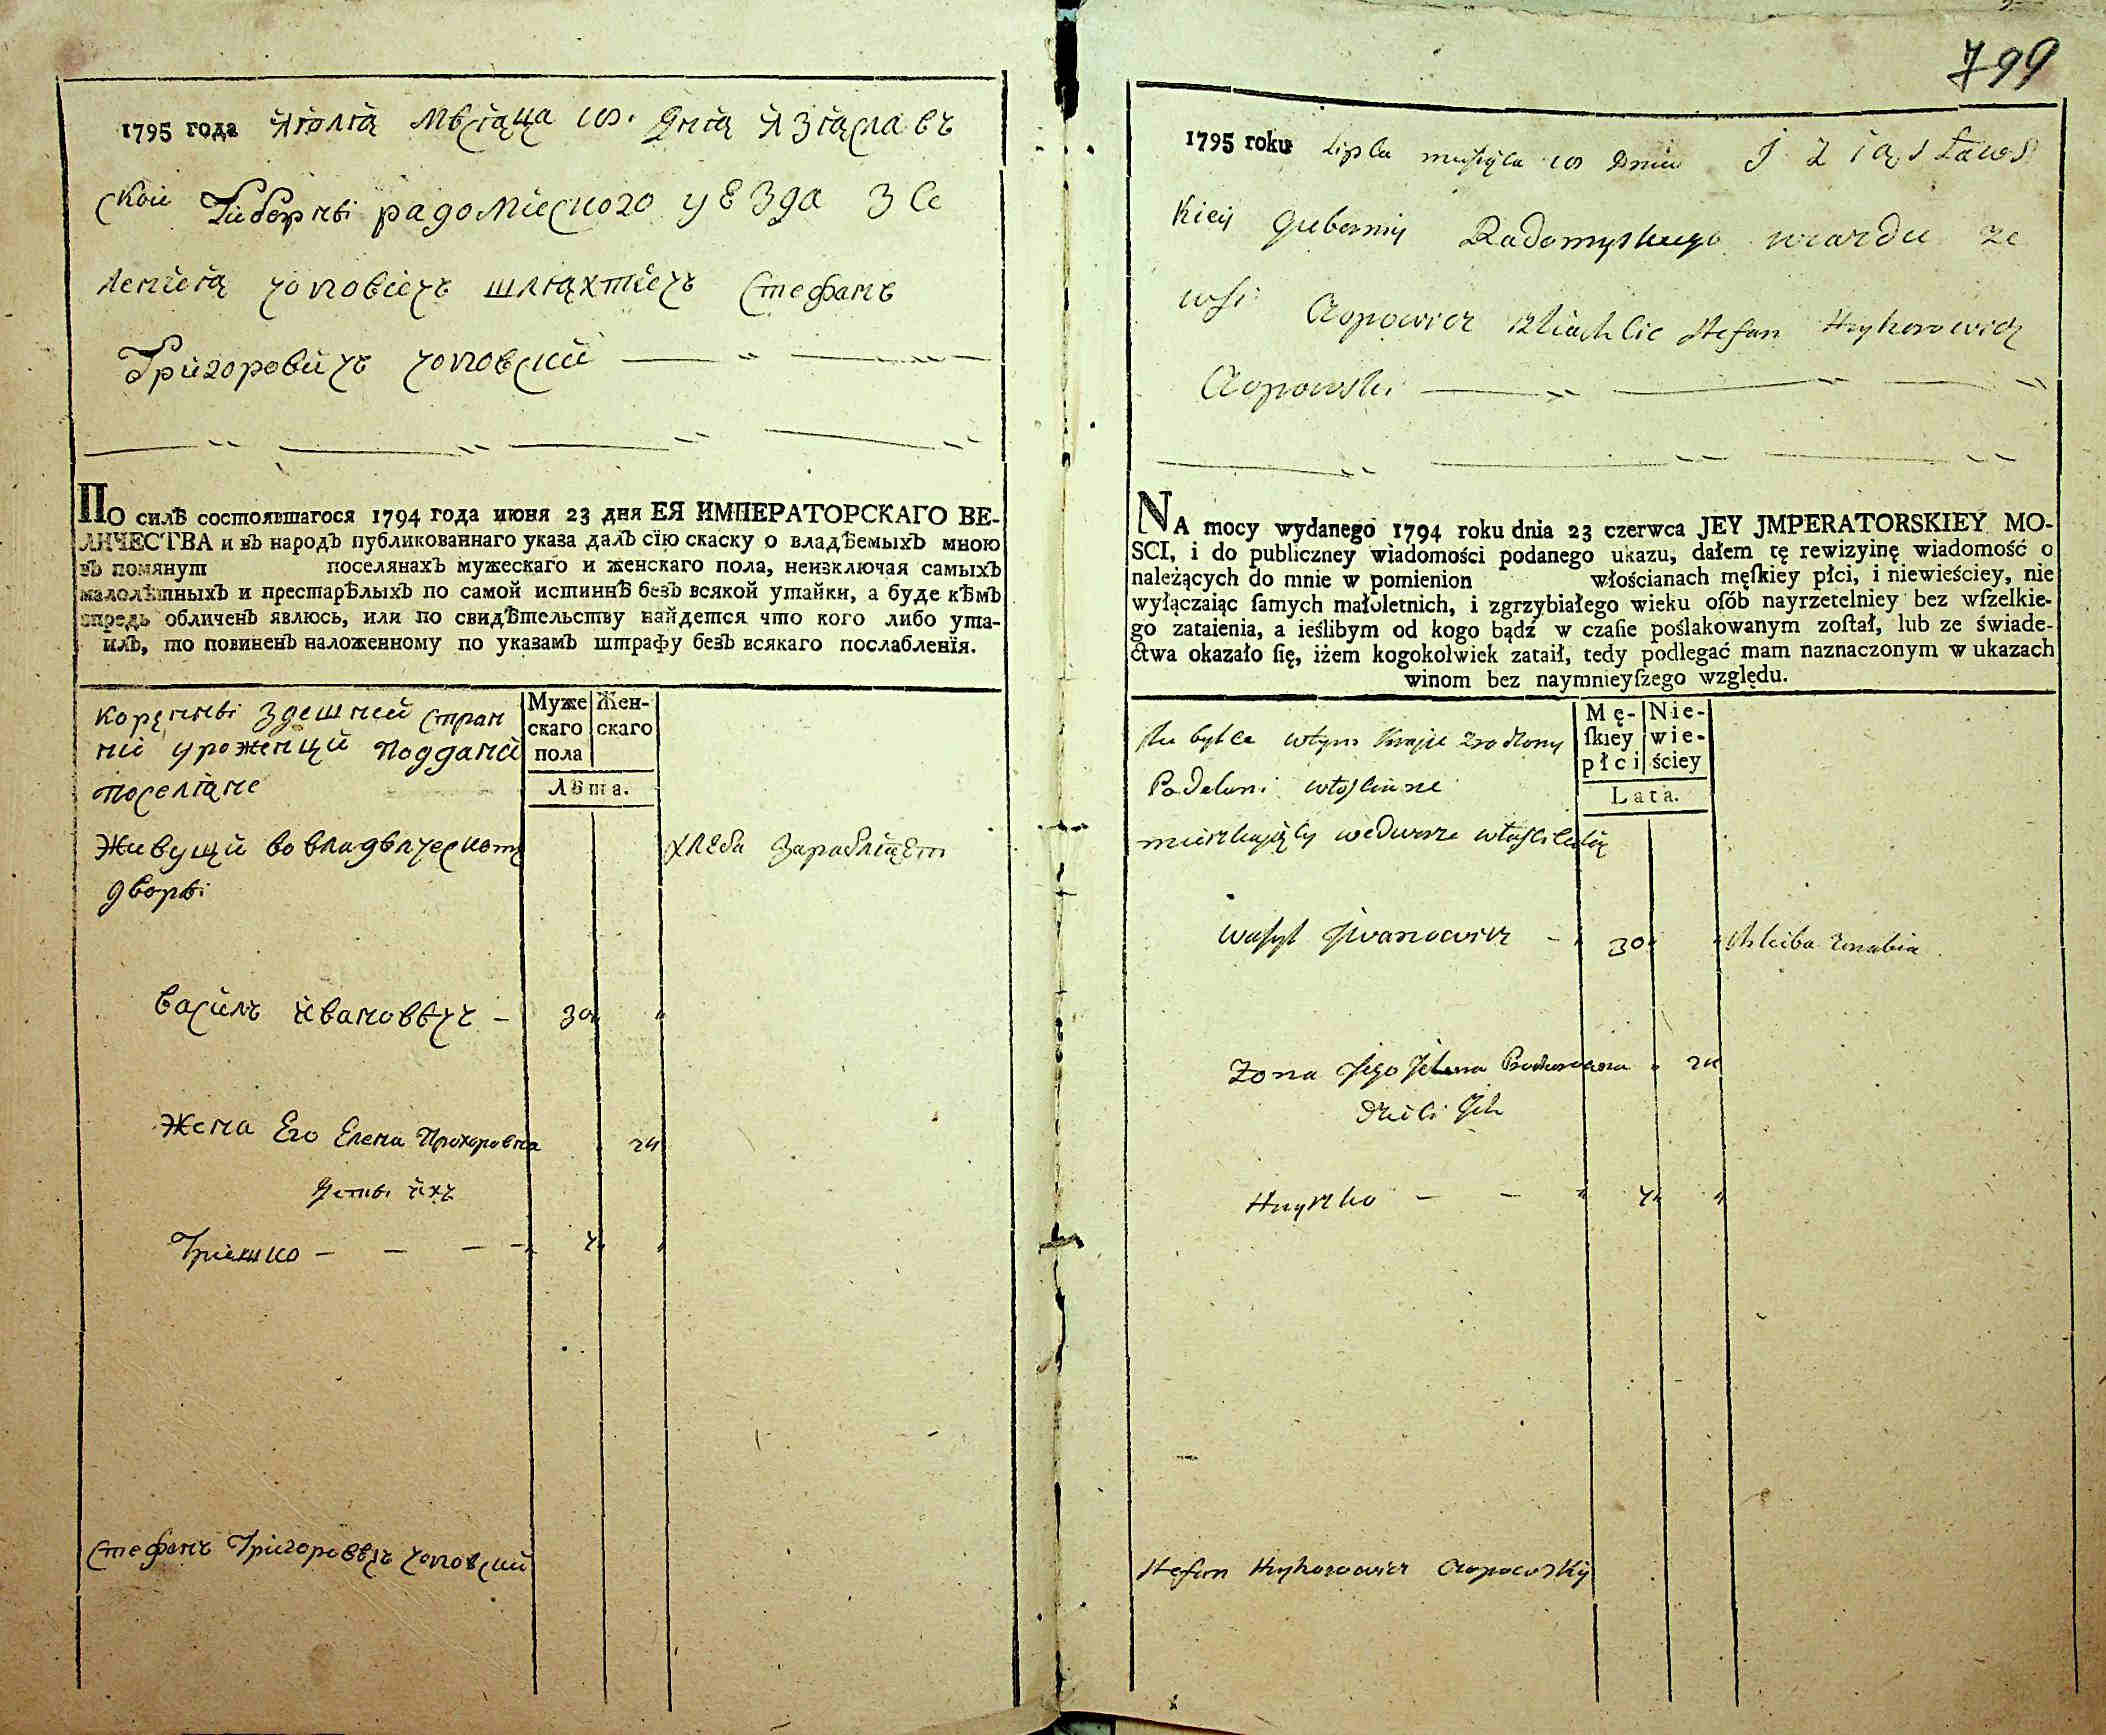 1795 года Июлія Мѣсяца 10. Дня Изяславъ
ской Губернѣі радомиского уезда З Се
ленія чоповичъ шляхтичъ Стефанъ
Григоровичъ чоповский
ПО силѣ состоявшагося 1794 года июня 23 дня ЕЯ ИМПЕРАТОРСКАГО ВЕ-
ЛИЧЕСТВА и въ народъ публикованнаго указа далъ сїю скаску о владѣемыхъ мною
въ помянут поселянахъ мужескаго и женскаго пола, неизключая самыхъ
малолѣтныхъ и престарѣлыхъ по самой истиннѣ безъ всякой утайки, а буде кѣмъ
впредь обличенъ явлюсь, или по свидѣтельству найдется что кого либо ута-
илъ, то повиненъ наложенному по указамъ штрафу безъ всякаго послабленїя.
Муже
скаго
пола
Жен-
скаго
Лѣта.
здешней стран
ни уроженци подданѣ
поселяне
Живущи во владѣлческомъ
дворѣ
хлеба зарабляет
василъ ивановвчъ – 30
Жена Его Елена Прохоровна 24
Детѣ ихъ
Гришко – – – 4
Стефанъ Григоровѣчъ чоповский
799
1795 roku Lipca miesiąca 10 Dnia J Z ią s ławs
kiey Guberniy Radomyskiego uiazdu ze
wsi Czopowicz szlachcic Stefan Hryhorowicz
Czopowski
NA mocy wydanego 1794 roku dnia 23 czerwca JEY JMPERATORSKIEY MO-
SCI, i do publiczney wiadomości podanego ukazu, dałem tę rewizyinę wiadomość o
należących do mnie w pomienion włościanach męſkiey płci, i niewieściey, nie
wyłączaiąc ſamych małoletnich, i zgrzybiałego wieku oſób nayrzetelniey bez wſzelkie-
go zataienia, a ieślibym od kogo bądź w czaſie poślakowanym zoſtał, lub ze świade-
ctwa okazało ſię, iżem kogokolwiek zataił, tedy podlegać mam naznaczonym w ukazach
winom bez naymnieyſzego względu.
Mę-
ſkiey
płci
Nie-
wie-
ściey
Lata.
wtym Kraju zrodzony
Poddani włościane
mieszkający wedworze właściciela
Wasyl Jwanowicz – 30 Chleiba zarabia
Zona Jego Jelena Prochorowna 24
dzieci Jch
Hryszko – – 4
Stefan Hryhorowicz Czopowskiy